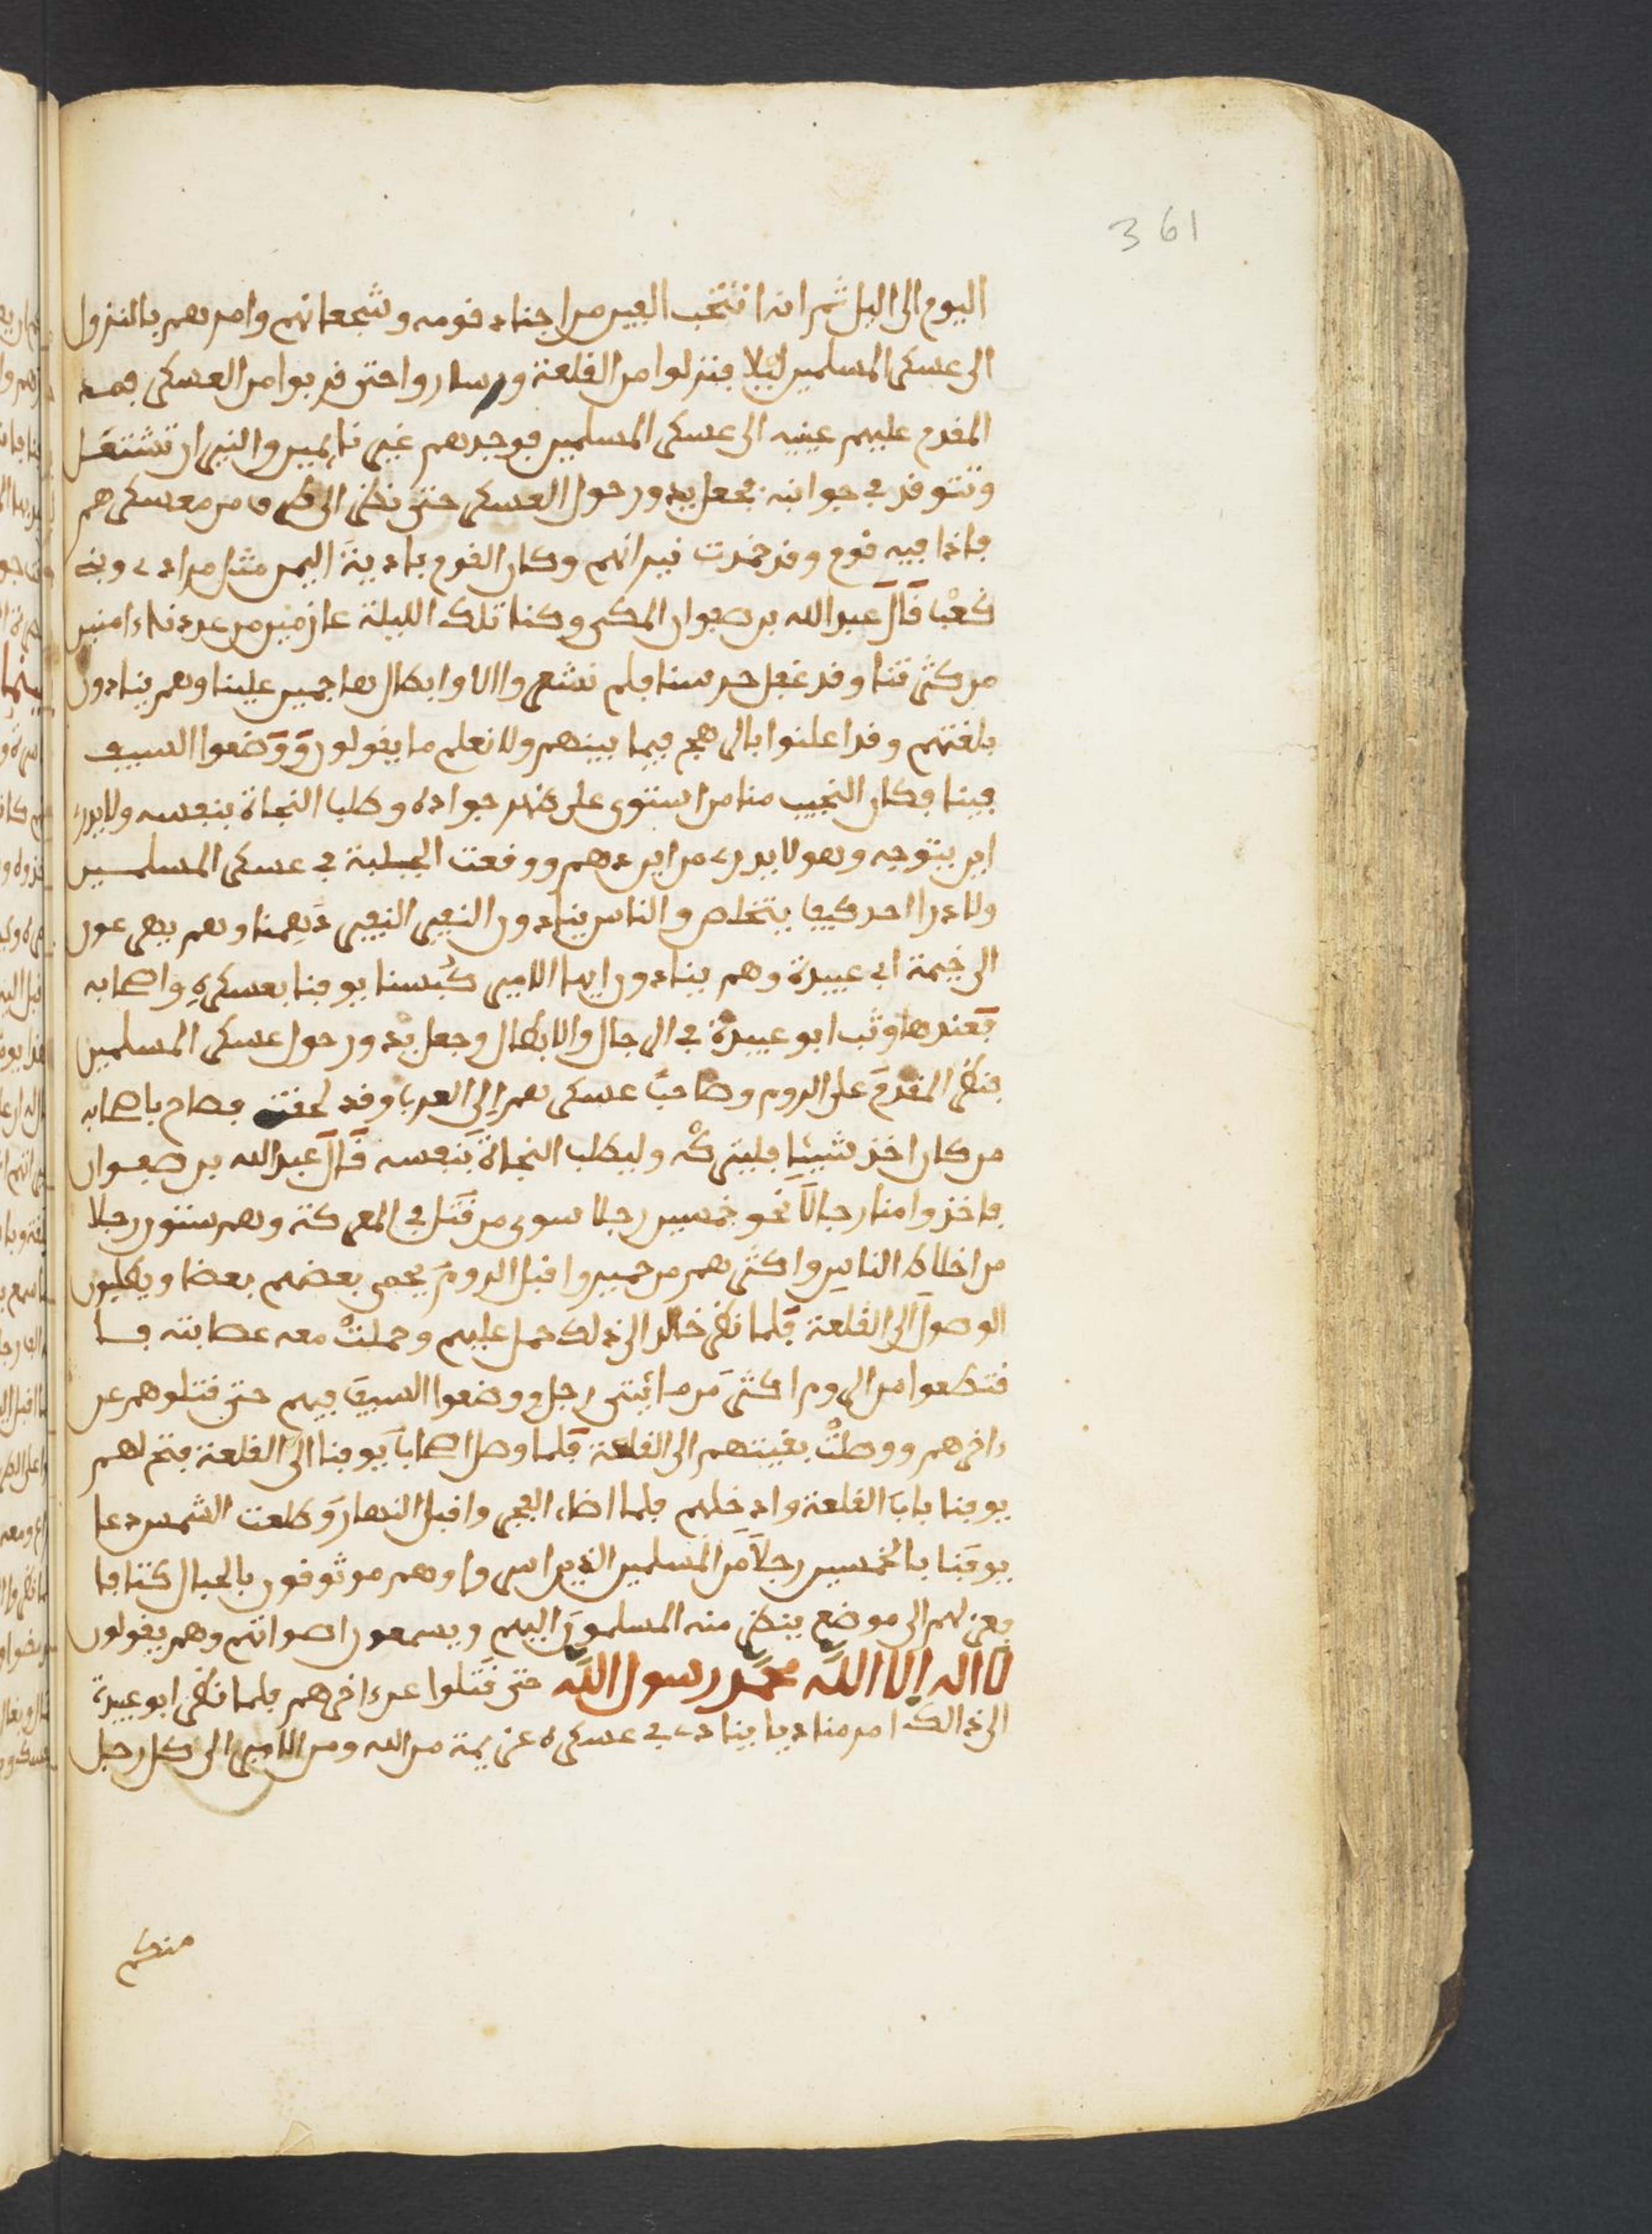 361
اليوم الى اليل ثم انه انتخب الفين من اجناد قومه وشجعانهم وامرهم بالنزول
الى عسكر المسلمين ليلا فنزلوا من القلعة وساروا حتى قربوا من العسكر فمد
المقدم عليهم عينيه الى عسكر المسلمين فوجدهم غير نايمين والنيران تشتعل
وتتوقد في جوانبه فجعل يدور حول العسكر حتى نظر الى طرف من معسكرهم
فاذا فيه قوم وقد خمدت نيرانهم وكان القوم بادية اليمن مثل مراد وبني
كعب قال عبد الله بن صفوان المكي وكنا تلك الليلة عازمين من عددنا ءامنين
من كثرتنا وقد غفل حرسنا فلم نشعر والا وابطال هاجمين علينا وهم ينادون
بلغتهم وقد اعلنوا بالرهج فيما بينهم ولا نعلم ما يقولون ووضعوا السيف
فينا فكان النجيب منا من استوى على ظهر جواده وطلب النجاة بنفسه ولا يدري
اين يتوجه وهو لا يدري من اين دهم ووقعت الجلبة في عسكر المسلمين
ولا درا احد كيف يتخلص والناس ينادون النفير النفير دهمنا وهم يهرعون
الى خيمة ابي عبيدة وهم ينادون ايها الامير كبسنا يوقنا بعسكره واصحابه
فعندها وثب ابو عبيدة في الرجال والابطال وجعل يدور حول عسكر المسلمين
فنظر المقدم على الروم وصاحب عسكرهم الى العرب وقد لحقت فصاح باصحابه
من كان اخذ شيئا فليتركه وليطلب النجاة بنفسه قال عبد الله بن صفوان
فاخذوا منا رجالا نحو خمسين رجلا سوى من قتل في المعركة وهم ستون رجلا
من اخلاط الناس واكثرهم من حمير واقبل الروم يحمي بعضهم بعضا ويطلبون
الوصول الى القلعة فلما نظر خالد الى ذلك حمل عليهم وحملت معه عصابته فا
قتطعوا من الروم اكثر من مائتي رجل ووضعوا السيف فيهم حتى قتلوهم عن
ءاخرهم ووصلت بقيتهم الى القلعة فلما وصل اصحاب يوقنا الى القلعة فتح لهم
يوقنا باب القلعة وادخلهم فلما اضاء الفجر واقبل النهار وطلعت الشمس دعا
يوقنا بالخمسين رجلا من المسلمين الذين اسروا وهم موثوقون بالحبال كتافا
فعزلهم الى موضع ينظر منه المسلمون اليهم ويسمعون اصواتهم وهم يقولون
لا اله الا الله محمد رسول الله حتى قتلوا عن ءاخرهم فلما نظر ابو عبيدة
الى ذالك امر مناديا ينادي في عسكره عزيمة من الله ومن الامير الى كل رجل
منكم